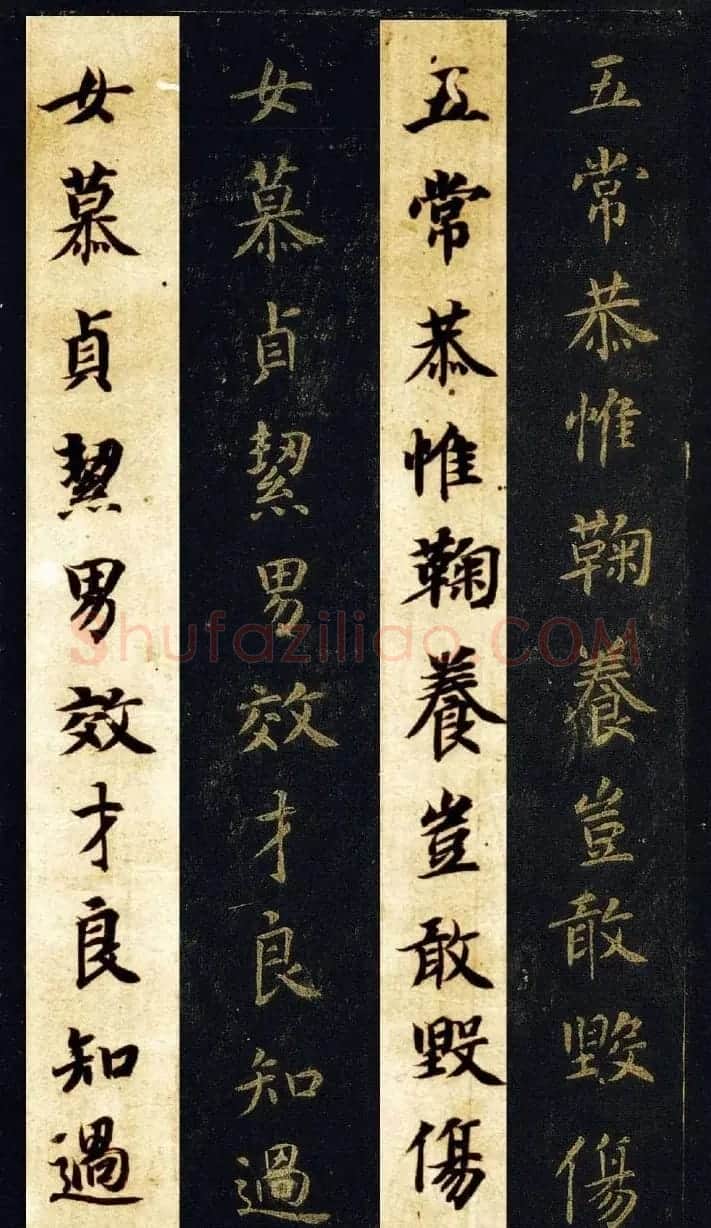 五常恭惟鞠養豈敢毀傷
五常恭惟鞠養豈敢毀傷
女慕貞絜男效才良知過
女慕貞絜男效才良知過
Shufaziliao.COM